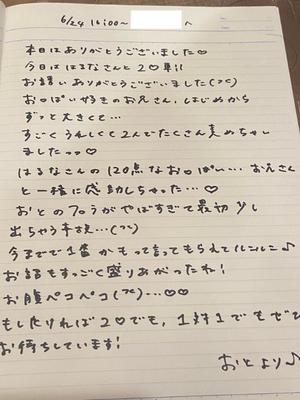 6/24 16:00〜 へ
本日はありがとうございました♡
今日ははるなさんと2♡車!!
お誘いありがとうございました
おっぱい好きのお兄さん、はじめから
ずっと大きくて…
すごくうれしくて2人でたくさん責めちゃい
ましたっっ♡
はるなさんの120点なおっぱい… お兄さん
と一緒に感動しちゃった…♡
おとのフェラがやばすぎて最初少し
出ちゃう事故…
今までで1番かもって言ってもらえてルンルン♪
お話もすっごく盛りあがったね!
お腹ペコペコ…♡♡
もしたりれば2♡でも、1対1でもぜひ
お待ちしています!
おとより♪